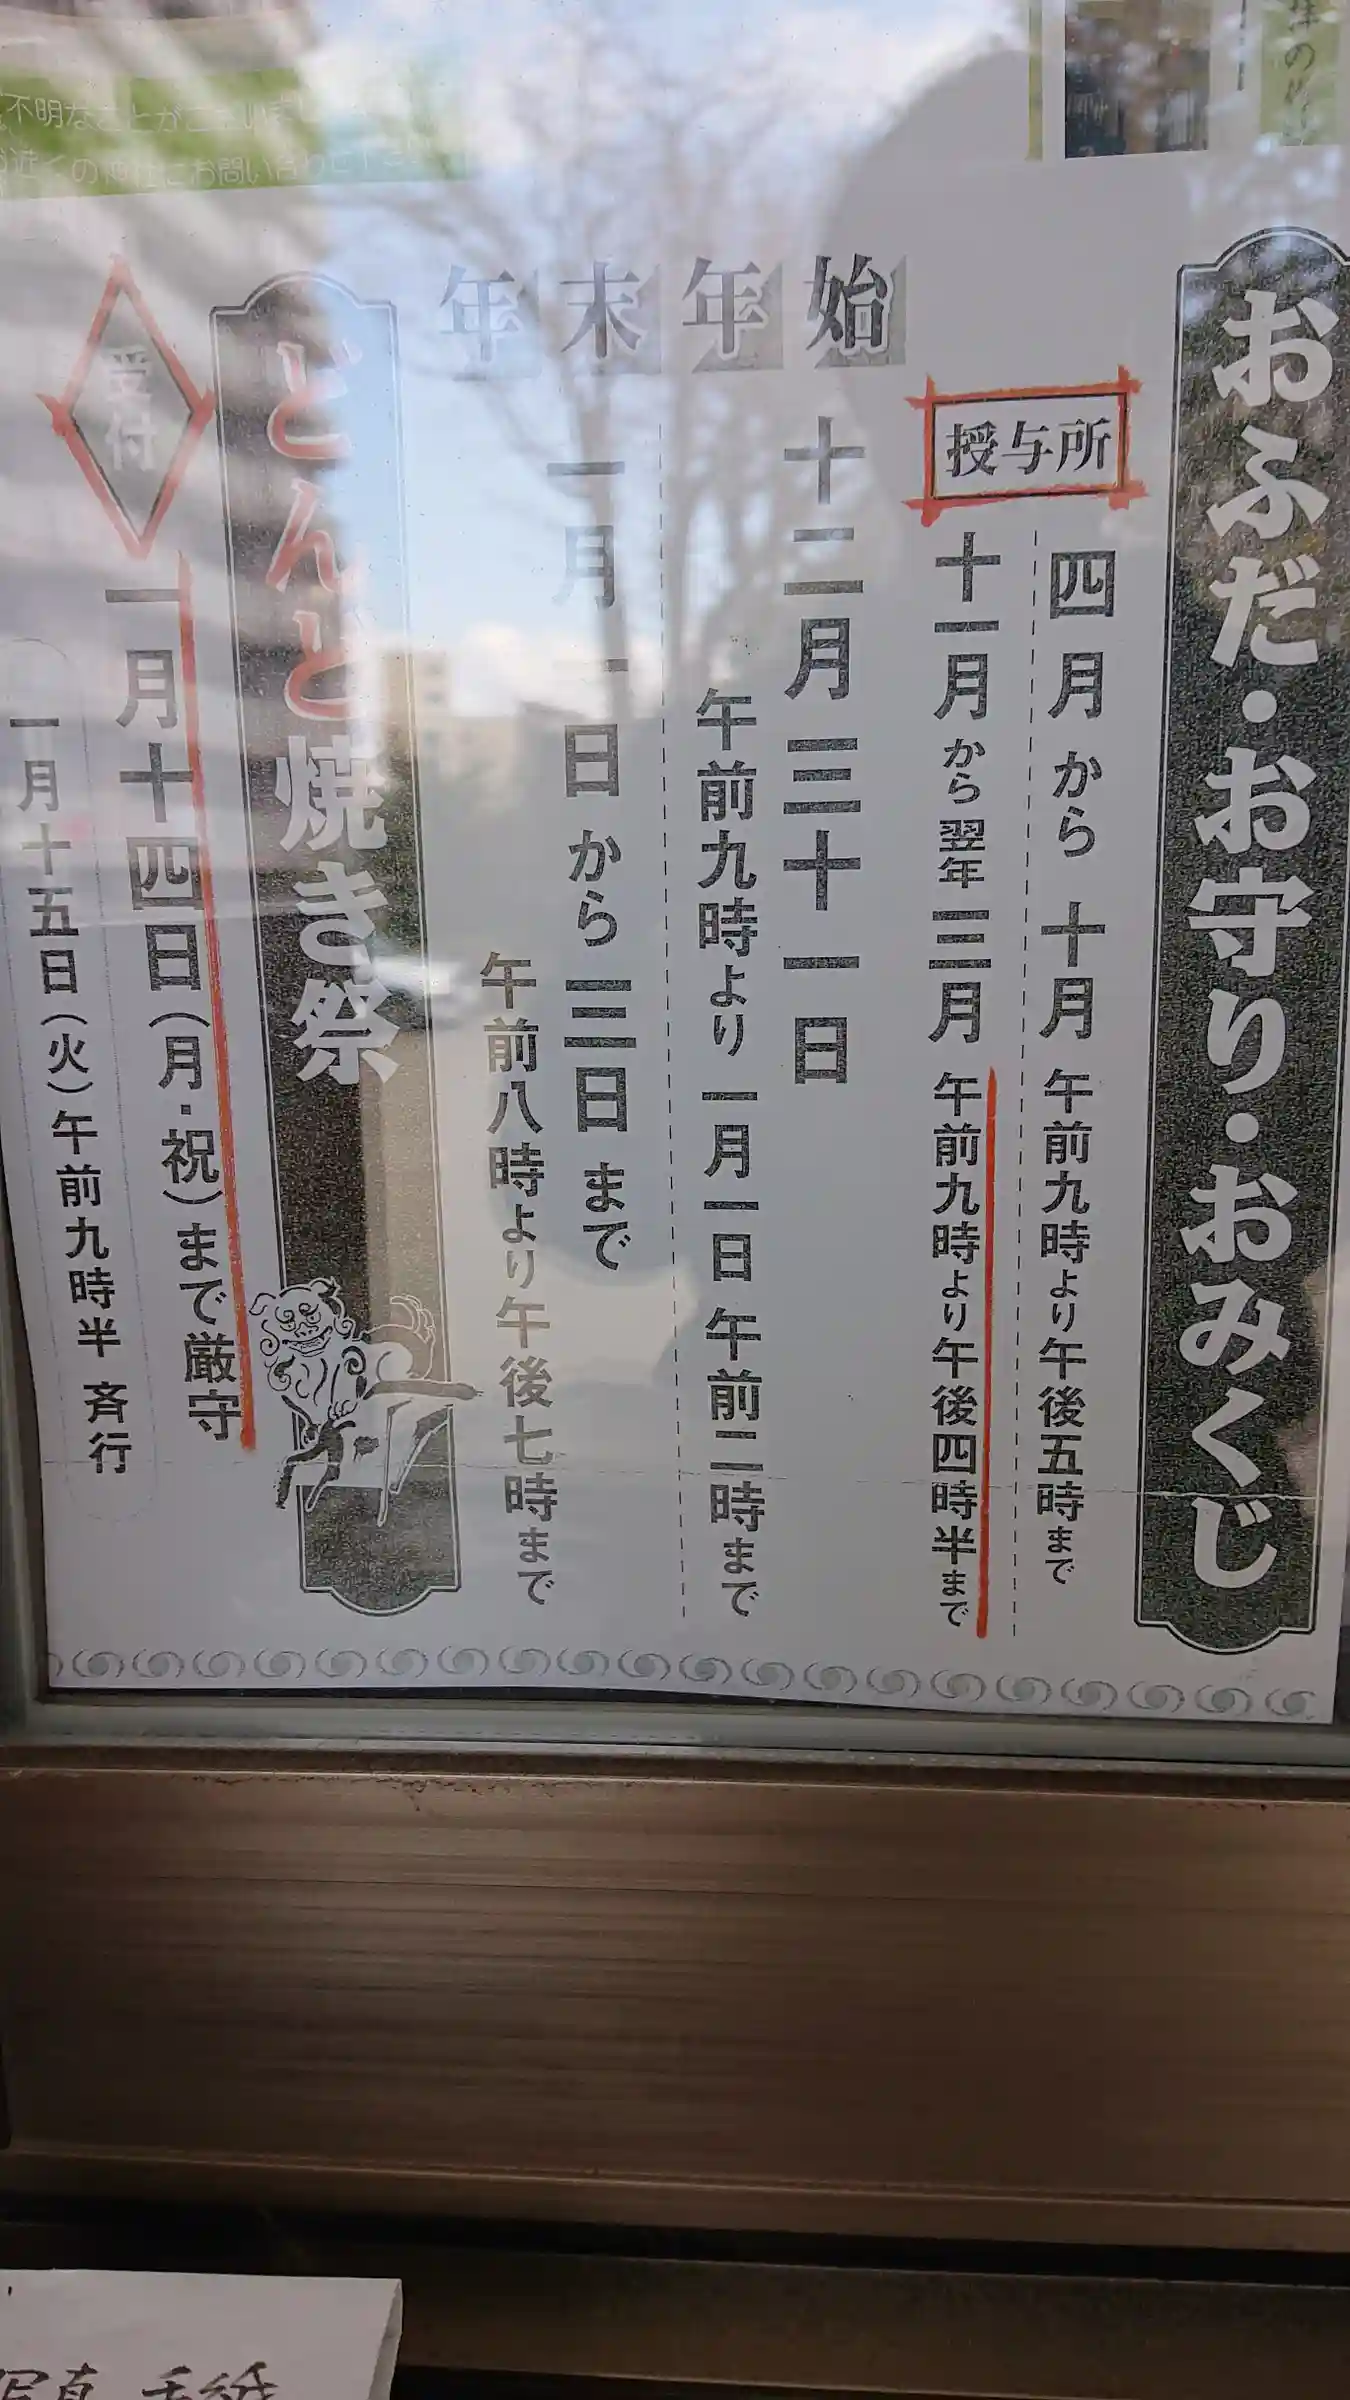 おふだ・お守り・おみくじ
授与所
四月から十月 午前九時より午後五時まで
十一月から翌年三月 午前九時より午後四時半まで
年末年始
十二月三十一日
午前九時より 一月一日 午前二時まで
一月一日から三日まで
午前八時より午後七時まで
どんど焼き祭
受付
一月十四日(月・祝)まで厳守
一月十五日(火)午前九時半 斉行
写真 手紙